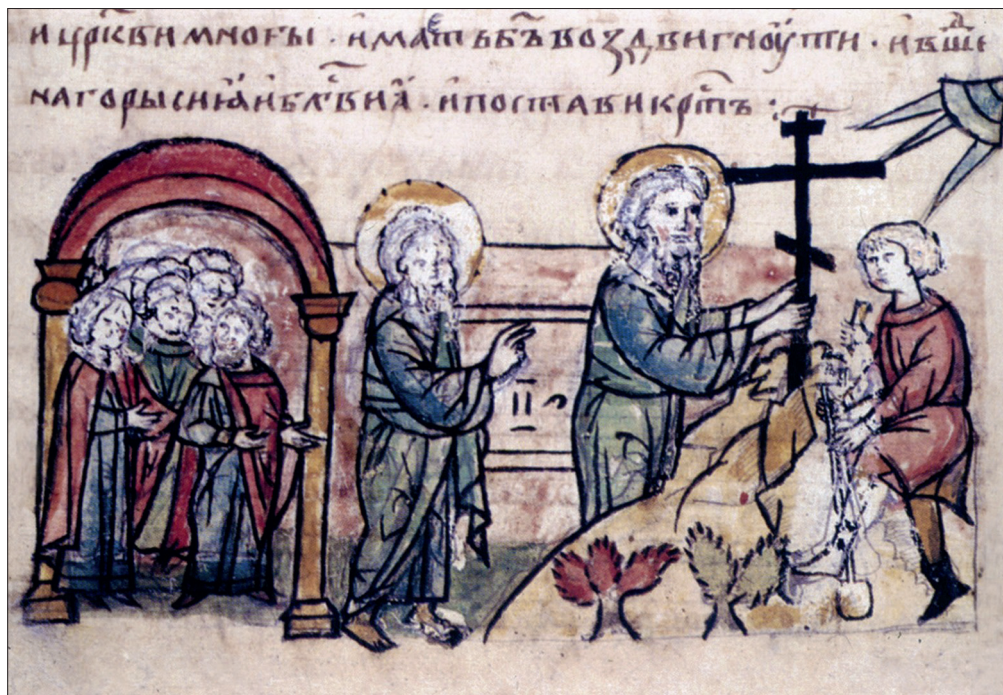 и црк҃ви многы · и имаⷷть б҃ъ воздвигноути · и вшⷣе
на горы сиꙗ и блс҃ви ꙗ · и постави крⷭ҇тъ :